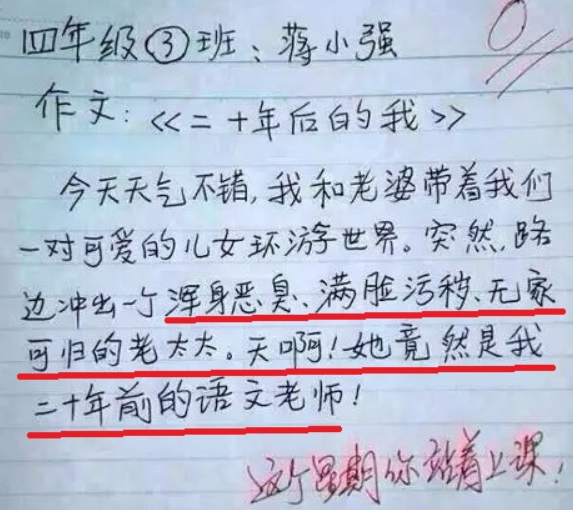 四年级③班:蒋小强
0
作文:《二十年后的我》
今天天气不错,我和老婆带着我们
一对可爱的儿女环游世界。突然,路
边冲出一个浑身恶臭、满脸污秽、无家
可归的老太太。天啊!她竟然是我
二十年前的语文老师!
这个星期你站着上课!